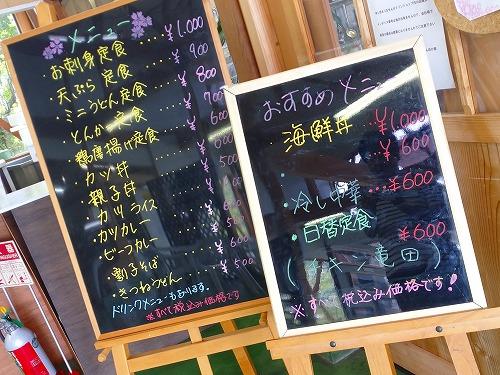 メニュー
・お刺身定食 ..... ¥1.000
・天ぷら 定食 .... ¥ 900
・ミニうどん定食 ... ¥ 800
・とんかつ定食 .... ¥ 700
・鶏唐揚げ定食 ¥ 600
・カツ丼
・親子丼
・カツライス
・カツカレー
・ビーフカレー
・割子そば ..... 600
・きつねうどん ..... ¥ 500
ドリンクメニューもあります。
※すべて税込み価格です
おすすめメニュー
・海鮮丼 ¥1.000
¥600
・冷し中華 ...¥600
・日替定食 ¥600
(チキン竜田)
※すべて税込み価格です!